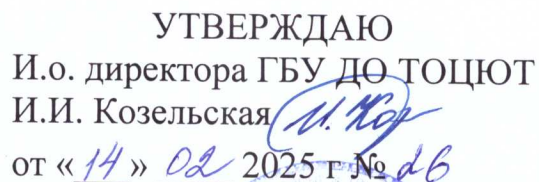 УТВЕРЖДАЮ
И.о. директора ГБУ ДО ТОЦЮТ
И.И. Козельская И. Коз
от « 14 » 02 2025 г № 26